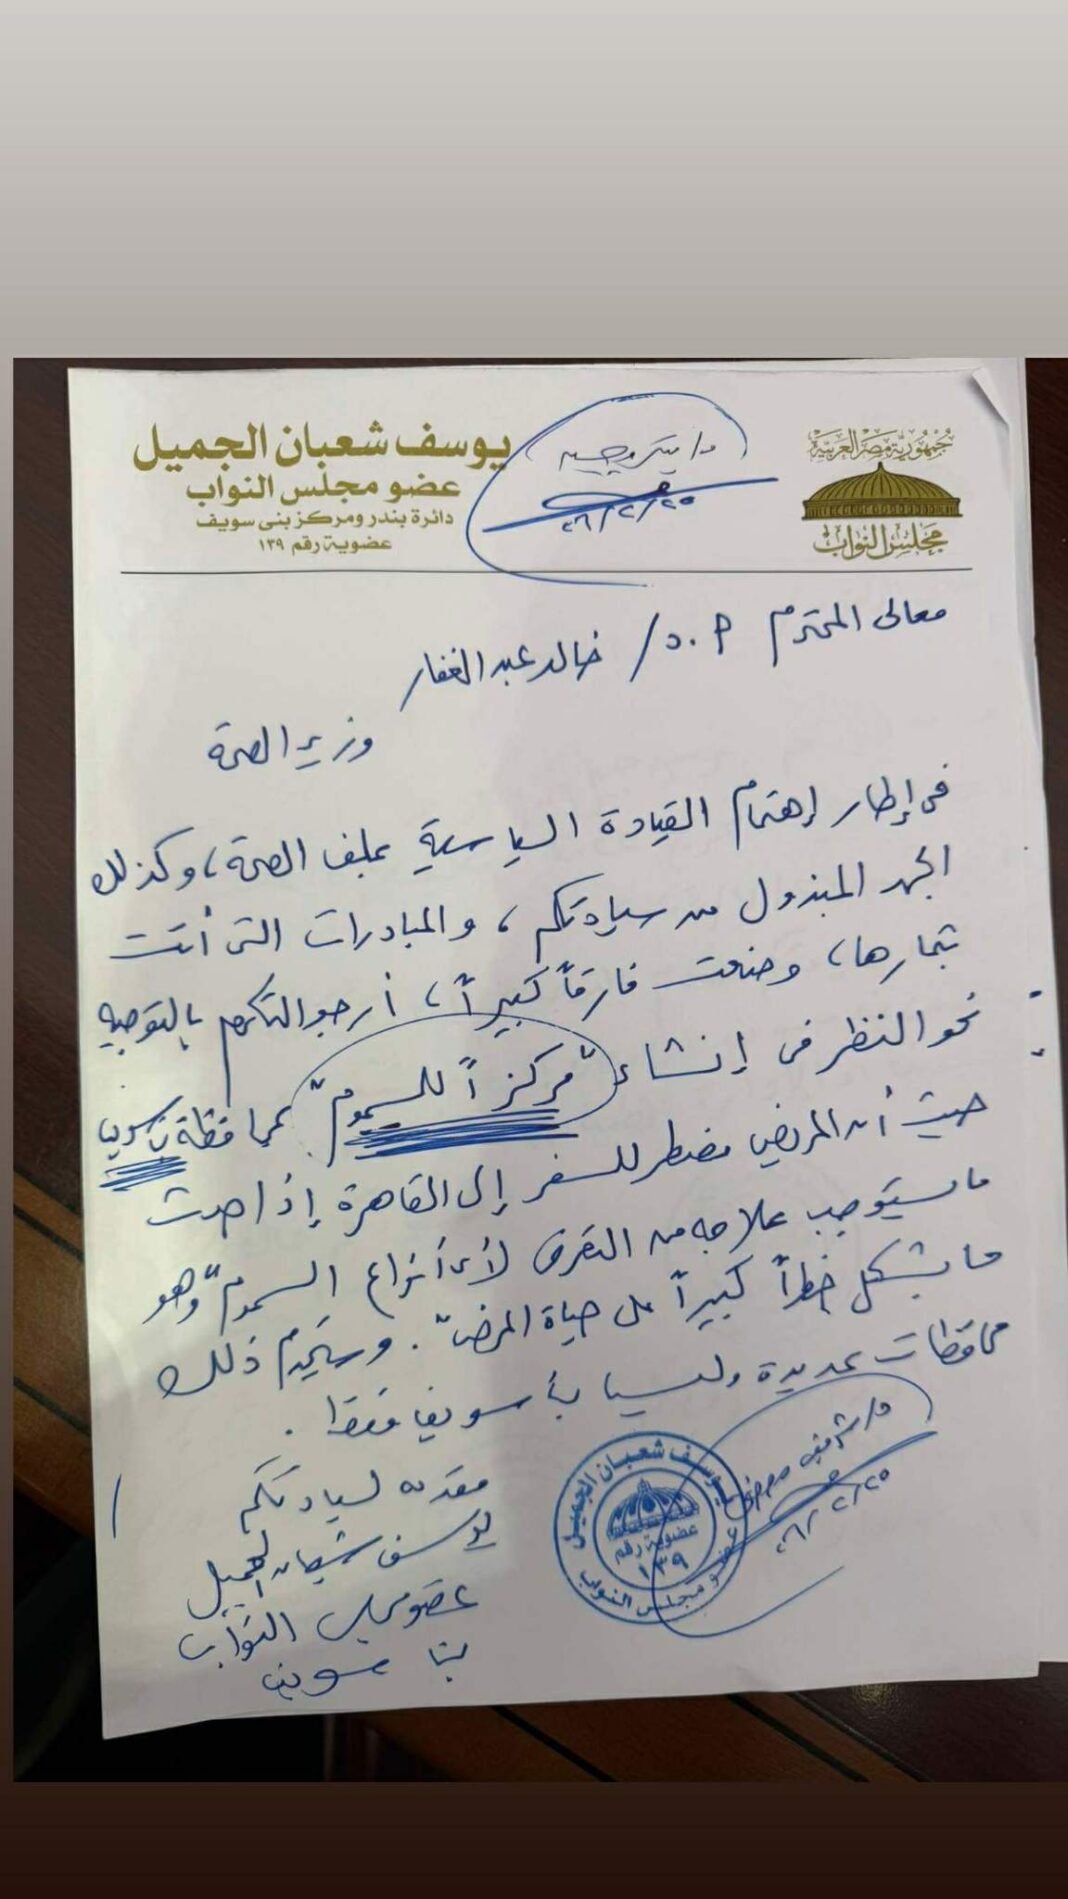 جمهورية مصر العربية
مجلس النواب
يوسف شعبان الجميل
عضو مجلس النواب
دائرة بندر ومركز بنى سويف
عضوية رقم ١٣٩
د/ بيتر وجيه
٢٠٢٦/٢/٢٥
معالى المحترم أ.د/ خالد عبد الغفار
وزير الصحة
فى إطار إهتمام القيادة السياسية بملف الصحة، وكذلك
الجهد المبذول من سيادتكم، والمبادرات التى أتت
بثمارها، وصنعت فارقاً كبيراً، أرجو التكرم بالتوجيه
نحو النظر فى إنشاء "مركزاً للسموم" بمحافظة بنا سويف
حيث أن المريض مضطر للسفر إلى القاهرة إذا حدث
ما يستوجب علاجه من التعرض لأى أنواع السموم "وهو
ما يشكل خطراً كبيراً على حياة المرضى". وسيخدم ذلك
محافظات عديدة وليس بنا سويف فقط.
مقدمه لسيادتكم
يوسف شعبان الجميل
عضو مجلس النواب
بنا سويف
يوسف شعبان الجميل
عضوية رقم
١٣٩
عضو مجلس النواب
د/ شريف مصطفى
٢٠٢٦/٢/٢٥